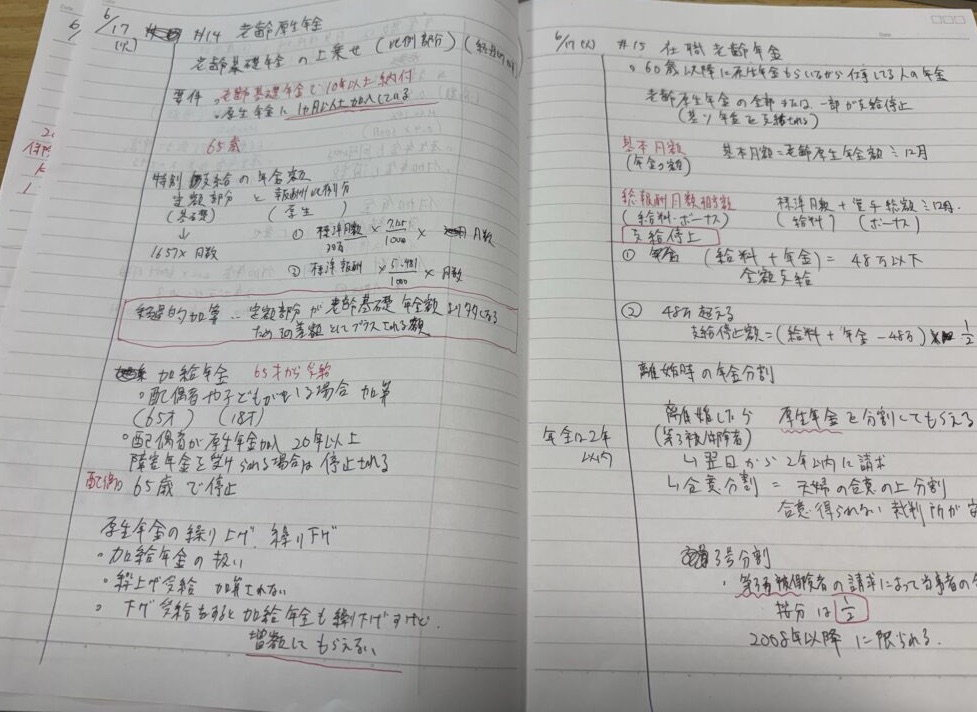 6/17
(火)
#14 老齢厚生年金
老齢基礎年金の上乗せ (比例部分)
要件 。老齢基礎年金で10年以上納付
。厚生年金に1ヶ月以上加入している
65歳
特別支給の年金額
定額部分 と 報酬比例分
(基礎) (厚生)
↓
1657×月数
① 標準月数 × 7.125/1000 × 月数
② 標準報酬 × 5.481/1000 × 月数
経過的加算 … 定額部分が老齢基礎年金額より多くなる
ためその差額としてプラスされる額
加給年金 65才から受給
。配偶者や子どもがいる場合 加算
(65才) (18才)
。配偶者が厚生年金加入 20年以上
障害年金を受けられる場合は停止される
配偶の 65歳で停止
厚生年金の繰り上げ、繰り下げ
。加給年金の扱い
。繰上げ受給 加算されない
。下げ受給をすると加給年金も繰り下げすけど、
増額して もらえない
6/17(火) #15 在職老齢年金
。60歳以降に厚生年金もらいながら仕事してる人の年金
老齢厚生年金の全部または一部が支給停止
(基ソ年金は支給される)
基本月額 基本月額=老齢厚生年金額÷12月
(年金の額)
総報酬月額相当額 標準月数+賞与総額÷12月
(給料・ボーナス) (給料) (ボーナス)
支給停止
① (給料+年金)= 48万以下
全額支給
② 48万超える
支給停止額=(給料+年金-48万)× 1/2
離婚時の年金分割
離婚したら 厚生年金を分割してもらえる
(第3被保険者)
年金は2年
以内
↳翌日から2年以内に請求
↳合意分割 = 夫婦の合意の上分割
合意得られない 裁判所が
3号分割
・第3号被保険者の請求によって当事者の
按分は 1/2
2008年以降に限られる.